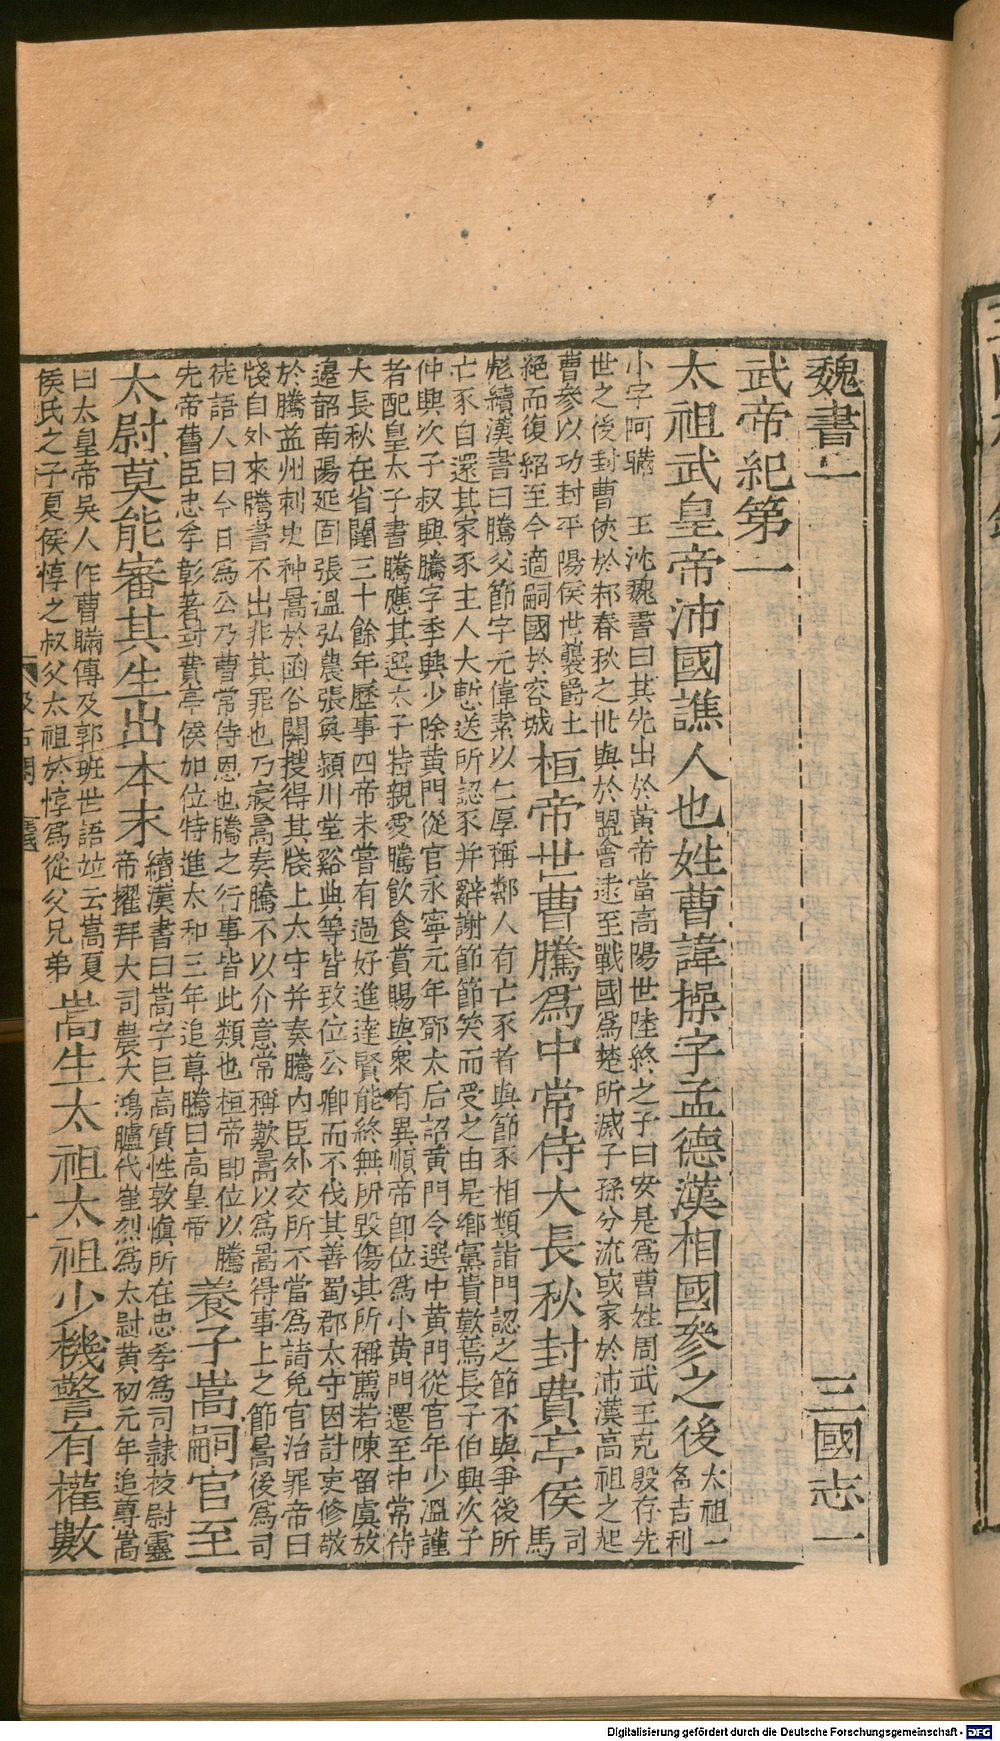 魏書一 三國志一
武帝紀第一
太祖武皇帝沛國譙人也姓曹諱操字孟德漢相國參之後
太祖一
名吉利
小字阿瞞 王沈魏書曰其先出於黃帝當高陽世陸終之子曰安是爲曹姓周武王克殷存先
世之後封曹俠於邾春秋之世與於盟會逮至戰國爲楚所滅子孫分流或家於沛漢高祖之起
曹參以功封平陽侯世襲爵土
絕而復紹至今適嗣國於容城
桓帝世曹騰爲中常侍大長秋封費亭侯
司
馬
彪續漢書曰騰父節字元偉素以仁厚稱鄰人有亡豕者與節豕相類詣門認之節不與爭後所
亡豕自還其家豕主人大慙送所認豕并辭謝節節笑而受之由是鄉黨貴歎焉長子伯興次子
仲興次子叔興騰字季興少除黃門從官永寧元年鄧太后詔黃門令選中黃門從官年少溫謹
者配皇太子書騰應其選太子特親愛騰飲食賞賜與衆有異順帝卽位爲小黃門遷至中常侍
大長秋在省闥三十餘年歷事四帝未嘗有過好進達賢能終無所毀傷其所稱薦若陳留虞放
邊韶南陽延固張溫弘農張奐潁川堂谿典等皆致位公卿而不伐其善蜀郡太守因計吏修敬
於騰益州刺史种暠於函谷關搜得其牋上太守并奏騰內臣外交所不當爲請免官治罪帝曰
牋自外來騰書不出非其罪也乃寢暠奏騰不以介意常稱歎暠以爲暠得事上之節暠後爲司
徒語人曰今日爲公乃曹常侍恩也騰之行事皆此類也桓帝卽位以騰
先帝舊臣忠孝彰著封費亭侯加位特進太和三年追尊騰曰高皇帝
養子嵩嗣官至
太尉莫能審其生出本末
續漢書曰嵩字巨高質性敦愼所在忠孝爲司隷校尉靈
帝擢拜大司農大鴻臚代崔烈爲太尉黃初元年追尊嵩
曰太皇帝吳人作曹瞞傳及郭班世語竝云嵩夏
侯氏之子夏侯惇之叔父太祖於惇爲從父兄弟
嵩生太祖太祖少機警有權數
Digitalisierung gefördert durch die Deutsche Forschungsgemeinschaft - DFG